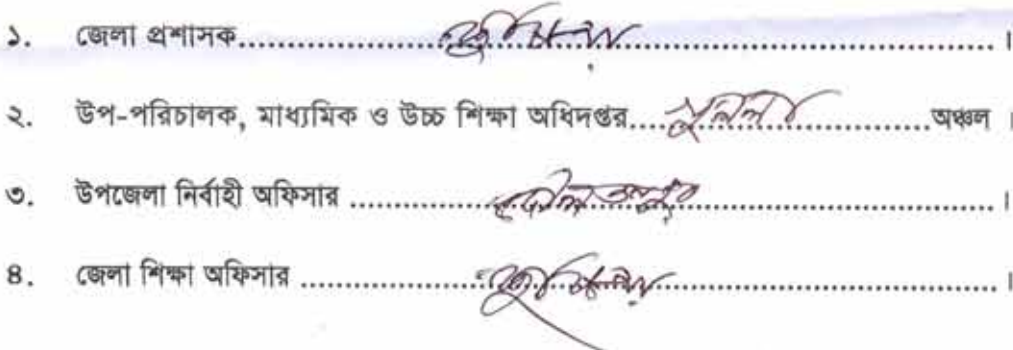 ১. জেলা প্রশাসক.....কুষ্টিয়া.....।
২. উপ-পরিচালক, মাধ্যমিক ও উচ্চ শিক্ষা অধিদপ্তর.....খুলনা.....অঞ্চল ।
৩. উপজেলা নির্বাহী অফিসার .....দৌলতপুর.....।
৪. জেলা শিক্ষা অফিসার .....কুষ্টিয়া.....।